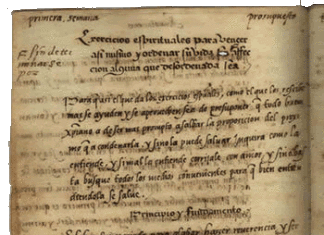 primera, semana presupuesto
Exercicios espirituales para vencer
a si mismo y ordenar su vida sin affec
cion alguna que desordenada sea
Para que asi el que da los exercicios espūales, como el que los rescibe
mas se ayuden y se aprovechen se de presuponer que todo buen
xpiano a de ser mas prompto a salbar la proposicion del proxi
mo que a condenarla, y si no la puede salvar inquira como la
entiende, y si mal la entiende corrijale con amor, y si no bas
ta busque todos los medios convenientes para que bien entien
diendola se salve.
Principio y Fundamento
hacer reverencia, y ser